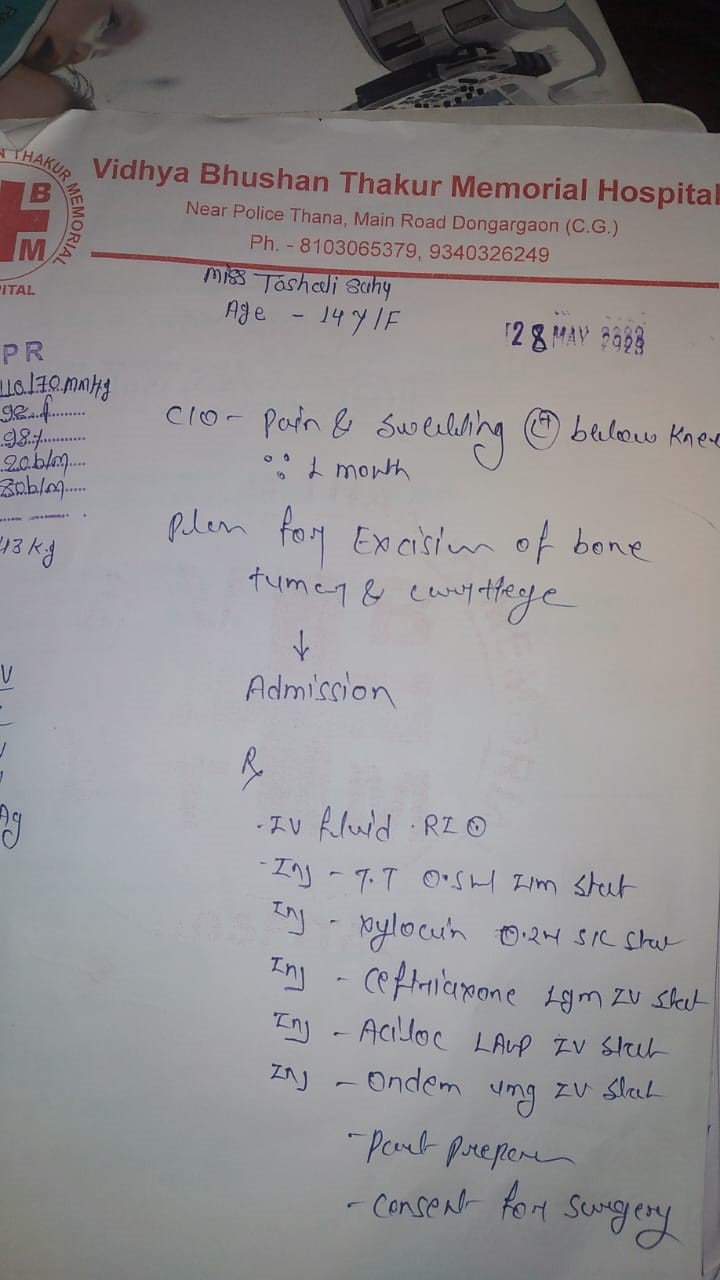 N THAKUR MEMORIAL
B
M
ITAL
Vidhya Bhushan Thakur Memorial Hospital
Near Police Thana, Main Road Dongargaon (C.G.)
Ph. - 8103065379, 9340326249
Miss Toshali Sahy
Age - 14 y/F
28 MAY
PR
110/70 mmHg
98.f
98%
20 b/m
80 b/m
43 Kg
C/O - Pain & Swelling below Knee
1 month
Plan for Excision of bone
tumor & curttege
↓
Admission
Rx
- IV fluid
- Inj - T.T 0.5ml I/m Stat
Inj - xylocin S/C Stat
Inj - Ceftriaxone 1gm IV Stat
Inj - Aciloc 1Amp IV Stat
Inj - Ondem 4mg IV Stat
- Part prepare
- Consent for Surgery
V
Ag